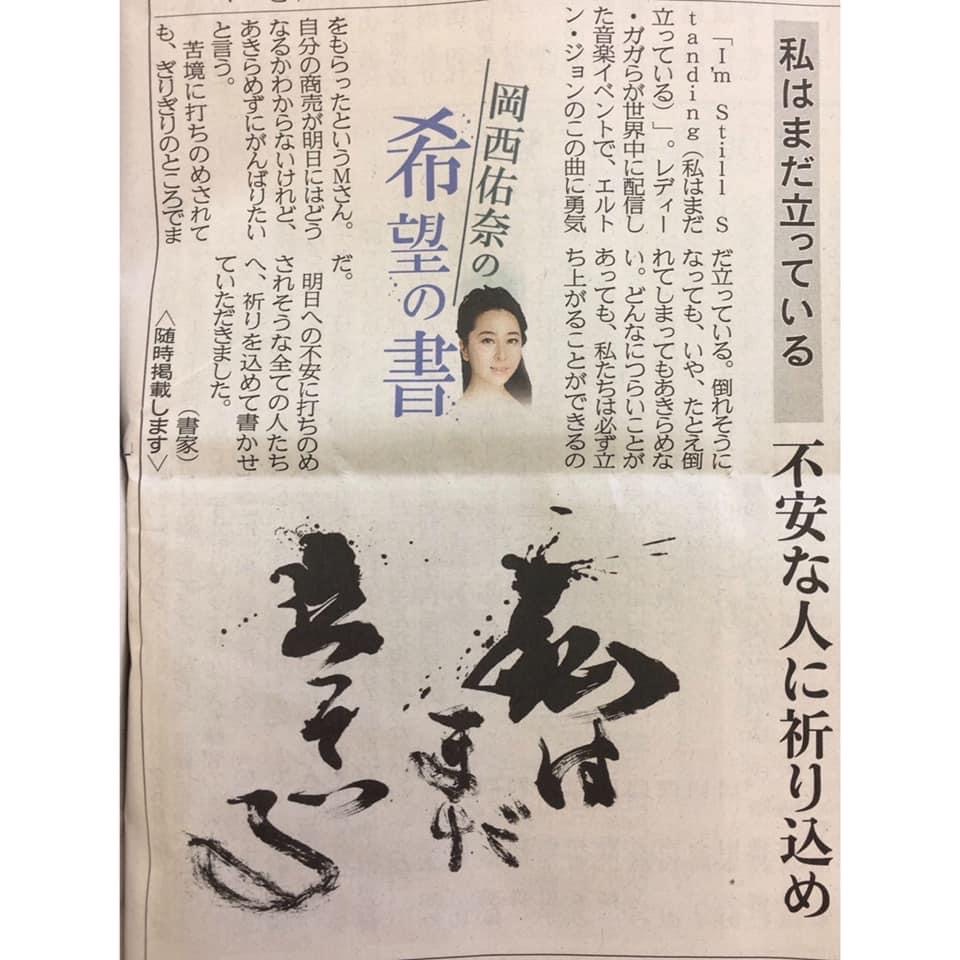 私はまだ立っている
不安な人に祈り込め
岡西佑奈の
希望の書
「I'm Still S
tanding(私はまだ
立っている)」。レディー
・ガガらが世界中に配信し
た音楽イベントで、エルト
ン・ジョンのこの曲に勇気
をもらったというMさん。
自分の商売が明日にはどう
なるかわからないけれど、
あきらめずにがんばりたい
と言う。
苦境に打ちのめされて
も、ぎりぎりのところでま
だ立っている。倒れそうに
なっても、いや、たとえ倒
れてしまってもあきらめな
い。どんなにつらいことが
あっても、私たちは必ず立
ち上がることができるの
だ。
明日への不安に打ちのめ
されそうな全ての人たち
へ、祈りを込めて書かせ
ていただきました。
(書家)
<随時掲載します>
私は
まだ
立っている